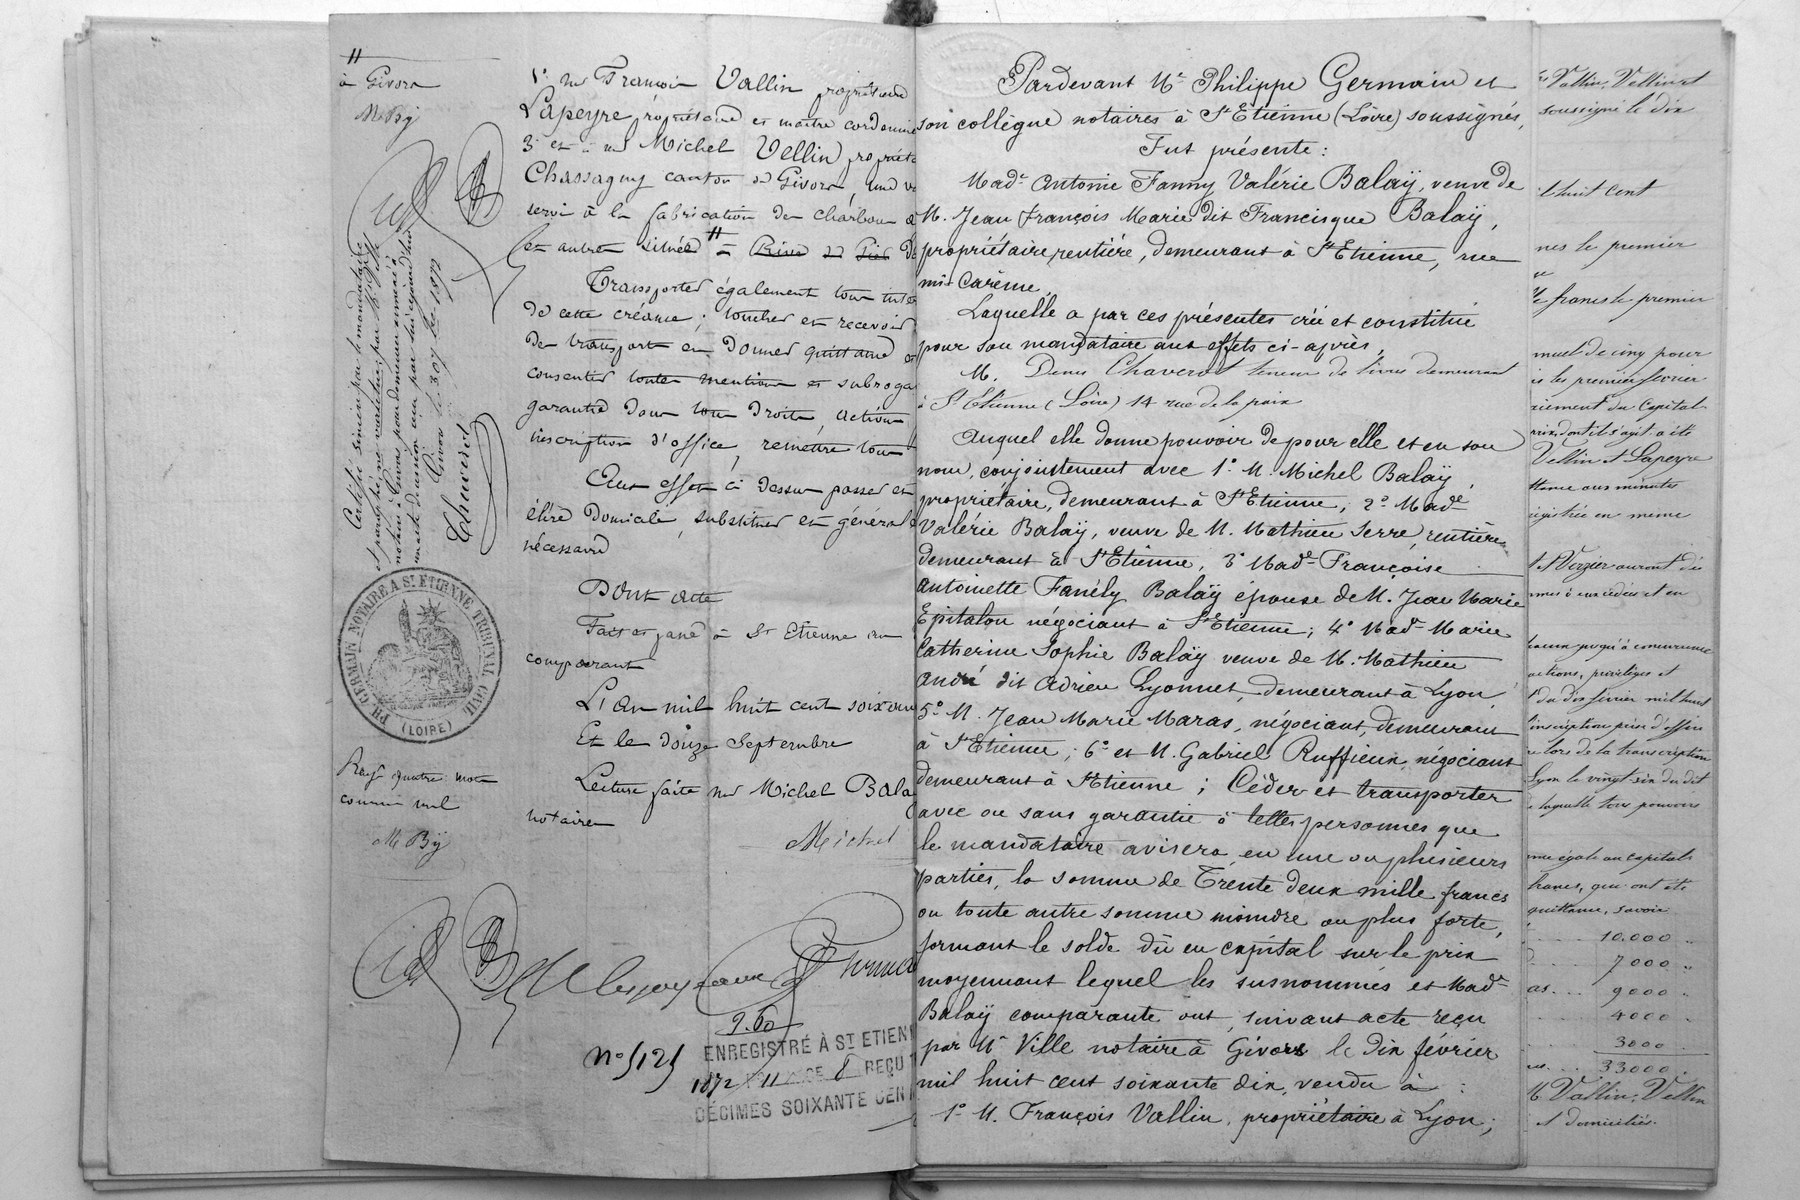 à Givors
M By
1° M. François Vallin propriétaire
Lapeyre, propriétaire et maître cordonnie
3° et à M. Michel Vellin propriéta
Chassagny canton de Givors, une
servi à la fabrication de charbon
et autres située = Rive de Gier
Transporter également tous
de cette créance ; toucher et recevoir
de transport en donner quittance
consentir toutes mentions et subroga
garantie dans tous droits, actions
inscription d'office, remettre tous
Aux effets ci dessus passer et
élire domicile, substituer et général
nécessaire
Dont acte
Fait et passé à St Etienne au
comparant
L'an mil huit cent soixan
Et le douze Septembre
Lecture faite M. Michel Bala
notaires
Michel
Certifié sincère par le mandataire
Givors le 30 1872
Chaverot
PH. GERMAIN NOTAIRE A ST ETIENNE TRIBUNAL CIVIL
(LOIRE)
Rayé quatre mots
comme nul
M By
9.60
N° 5125
ENREGISTRÉ À ST ETIEN
1872 11 8 REÇU
DÉCIMES SOIXANTE CEN
Pardevant Me Philippe Germain et
son collègue notaires à St Etienne (Loire) soussignés,
Fut présente :
Made Antonie Fanny Valérie Balaÿ, veuve de
M. Jean François Marie dit Francisque Balaÿ,
propriétaire rentière, demeurant à St Etienne, rue
mi-Carême,
Laquelle a par ces présentes créé et constitué
pour son mandataire aux effets ci-après,
M. Denis Chaverot teneur de livres demeurant
à St Etienne (Loire) 14 rue de la paix
Auquel elle donne pouvoir de pour elle et en son
nom, conjointement avec 1° M. Michel Balaÿ,
propriétaire, demeurant à St Etienne, 2° Made
Valérie Balaÿ, veuve de M. Mathieu Serre, rentière,
demeurant à St Etienne, 3° Made Françoise
Antoinette Fanély Balaÿ épouse de M. Jean Marie
Epitalon négociant à St Etienne ; 4° Made Marie
Catherine Sophie Balaÿ veuve de M. Mathieu
André dit Adrien Lyonnet, demeurant à Lyon,
5° M. Jean Marie Maras, négociant, demeurant
à St Etienne ; 6° et M. Gabriel Ruffieux, négociant
demeurant à St Etienne ; Céder et transporter
avec ou sans garantie à telles personnes que
le mandataire avisera, en une ou plusieurs
parties, la somme de Trente deux mille francs
ou toute autre somme moindre ou plus forte,
formant le solde dû en capital sur le prix
moyennant lequel les susnommés et Made
Balaÿ comparante ont, suivant acte reçu
par Me Ville notaire à Givors le dix février
mil huit cent soixante dix, vendu à :
1° M. François Vallin, propriétaire à Lyon ;
Vallin, Vellin et
soussigné le dix
huit cent
le premier
francs le premier
de cinq pour
les premier février
du Capital
dont il s'agit a été
Vellin et Lapeyre
minutes
registrée en même
Verzier auront
jusqu'à concurrence
actions, privilèges et
du dix février mil huit
inscription prise d'office
lors de la transcription
Lyon le vingt six du dit
laquelle tous pouvoirs
égale au capital
francs, qui ont été
quittance, savoir
10.000
7000
9000
4000
3000
33000
Vallin, Vellin
et domiciliés.